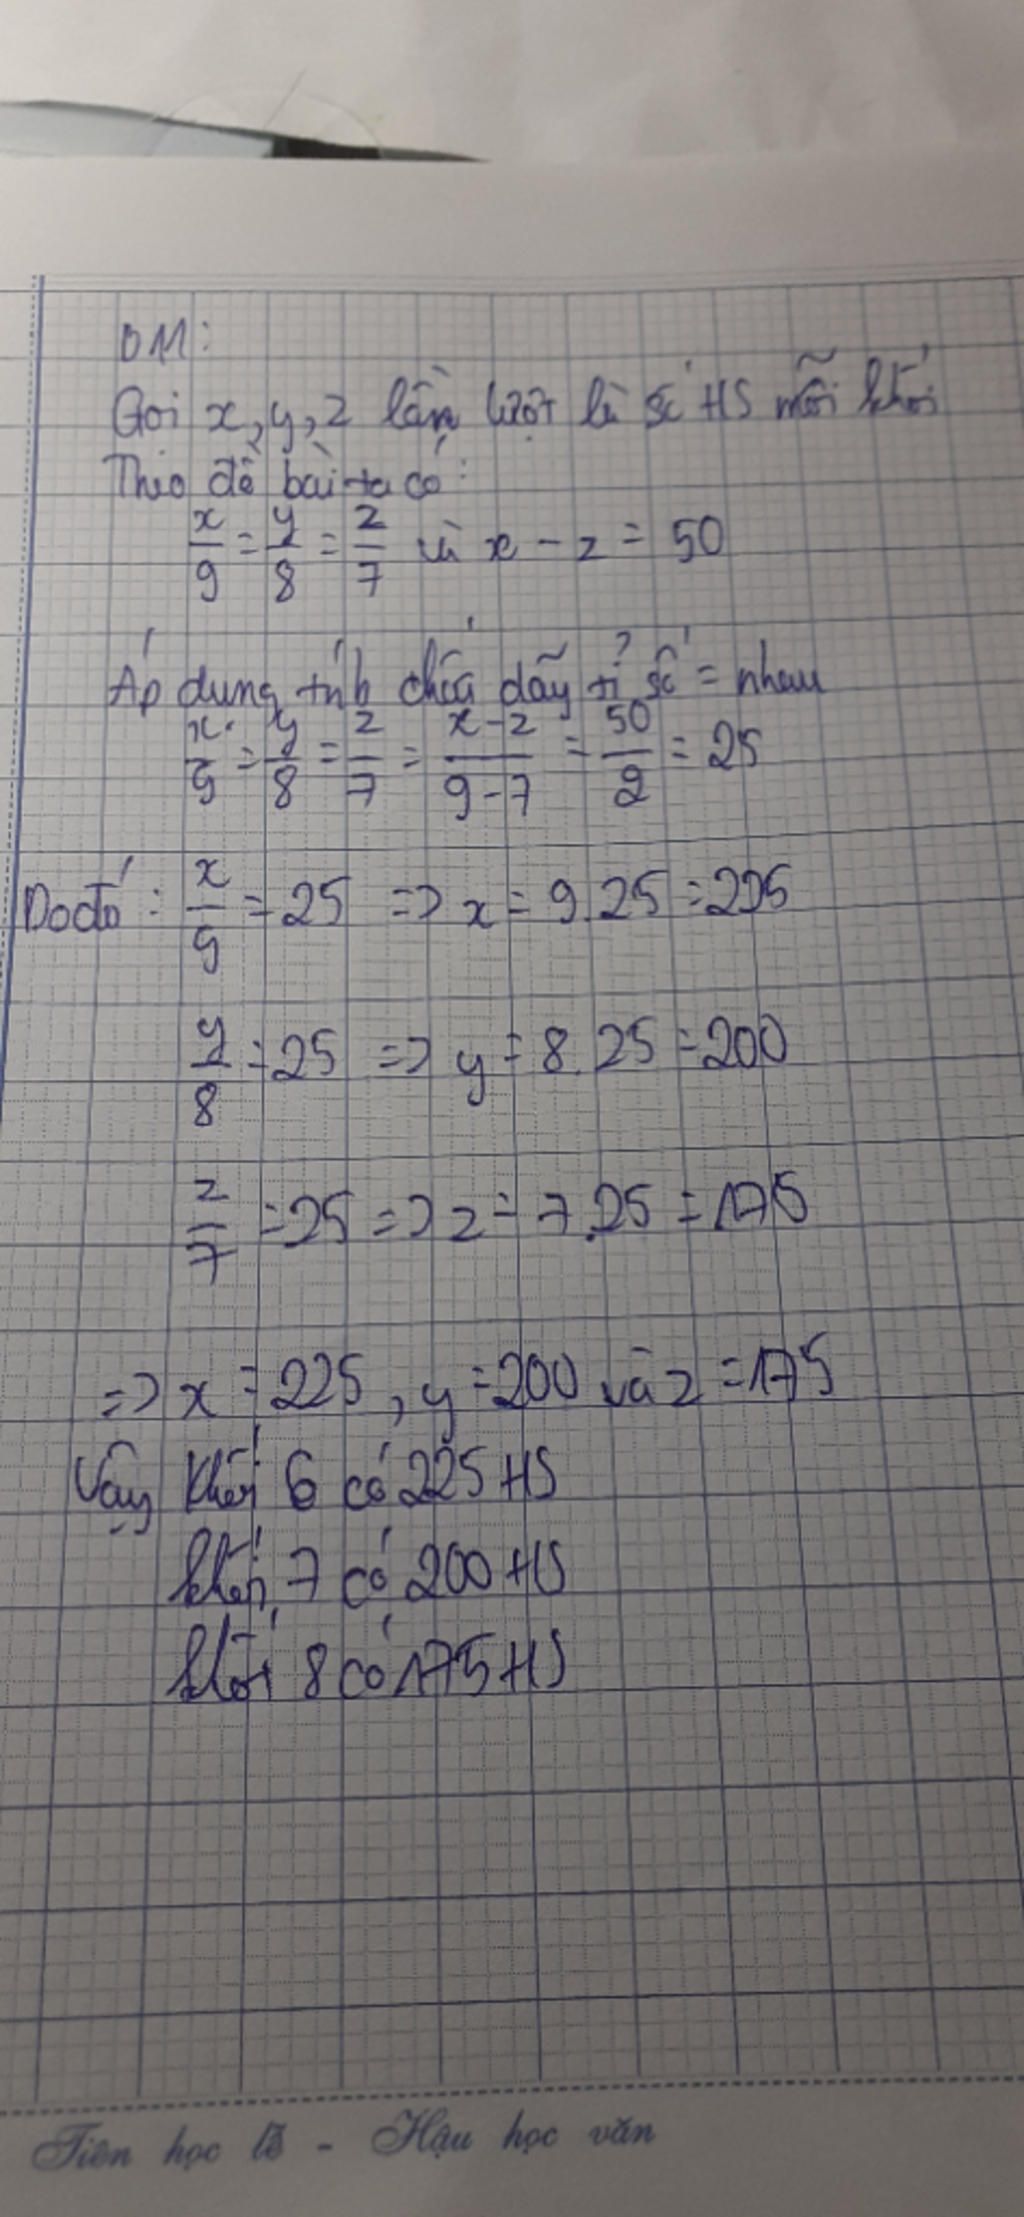 ĐM:
Gọi x, y, z lần lượt là số HS mỗi khối
Theo đề bài ta có:
x/9 = y/8 = z/7 và x - z = 50
Áp dụng tính chất dãy tỉ số = nhau
x/9 = y/8 = z/7 = x-z/9-7 = 50/2 = 25
Do đó: x/9 = 25 => x = 9.25 = 225
y/8 = 25 => y = 8.25 = 200
z/7 = 25 => z = 7.25 = 175
=> x = 225, y = 200 và z = 175
Vậy khối 6 có 225 HS
khối 7 có 200 HS
khối 8 có 175 HS
Tiên học lễ - Hậu học văn